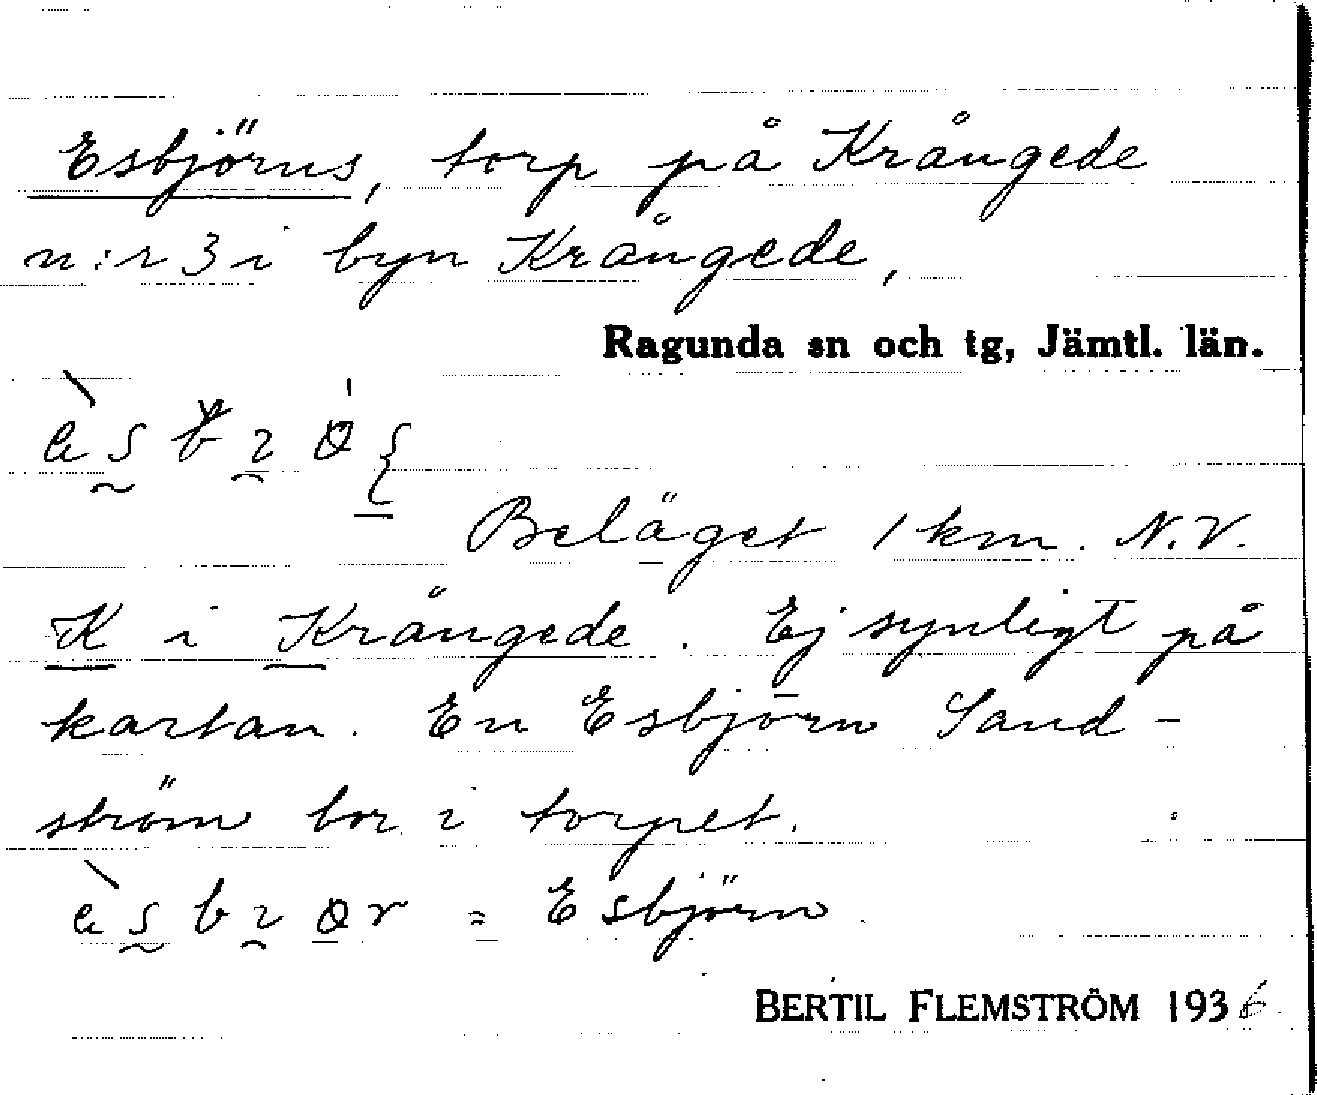 Esbjörns, torp på Krångede
n:r 3 i byn Krångede,
Ragunda sn och tg, Jämtl. län.
Beläget 1 km. N.V.
K i Krångede. Ej synligt på
kartan. En Esbjörn Sand-
ström bor i torpet.
= Esbjörn.
BERTIL FLEMSTRÖM 1936